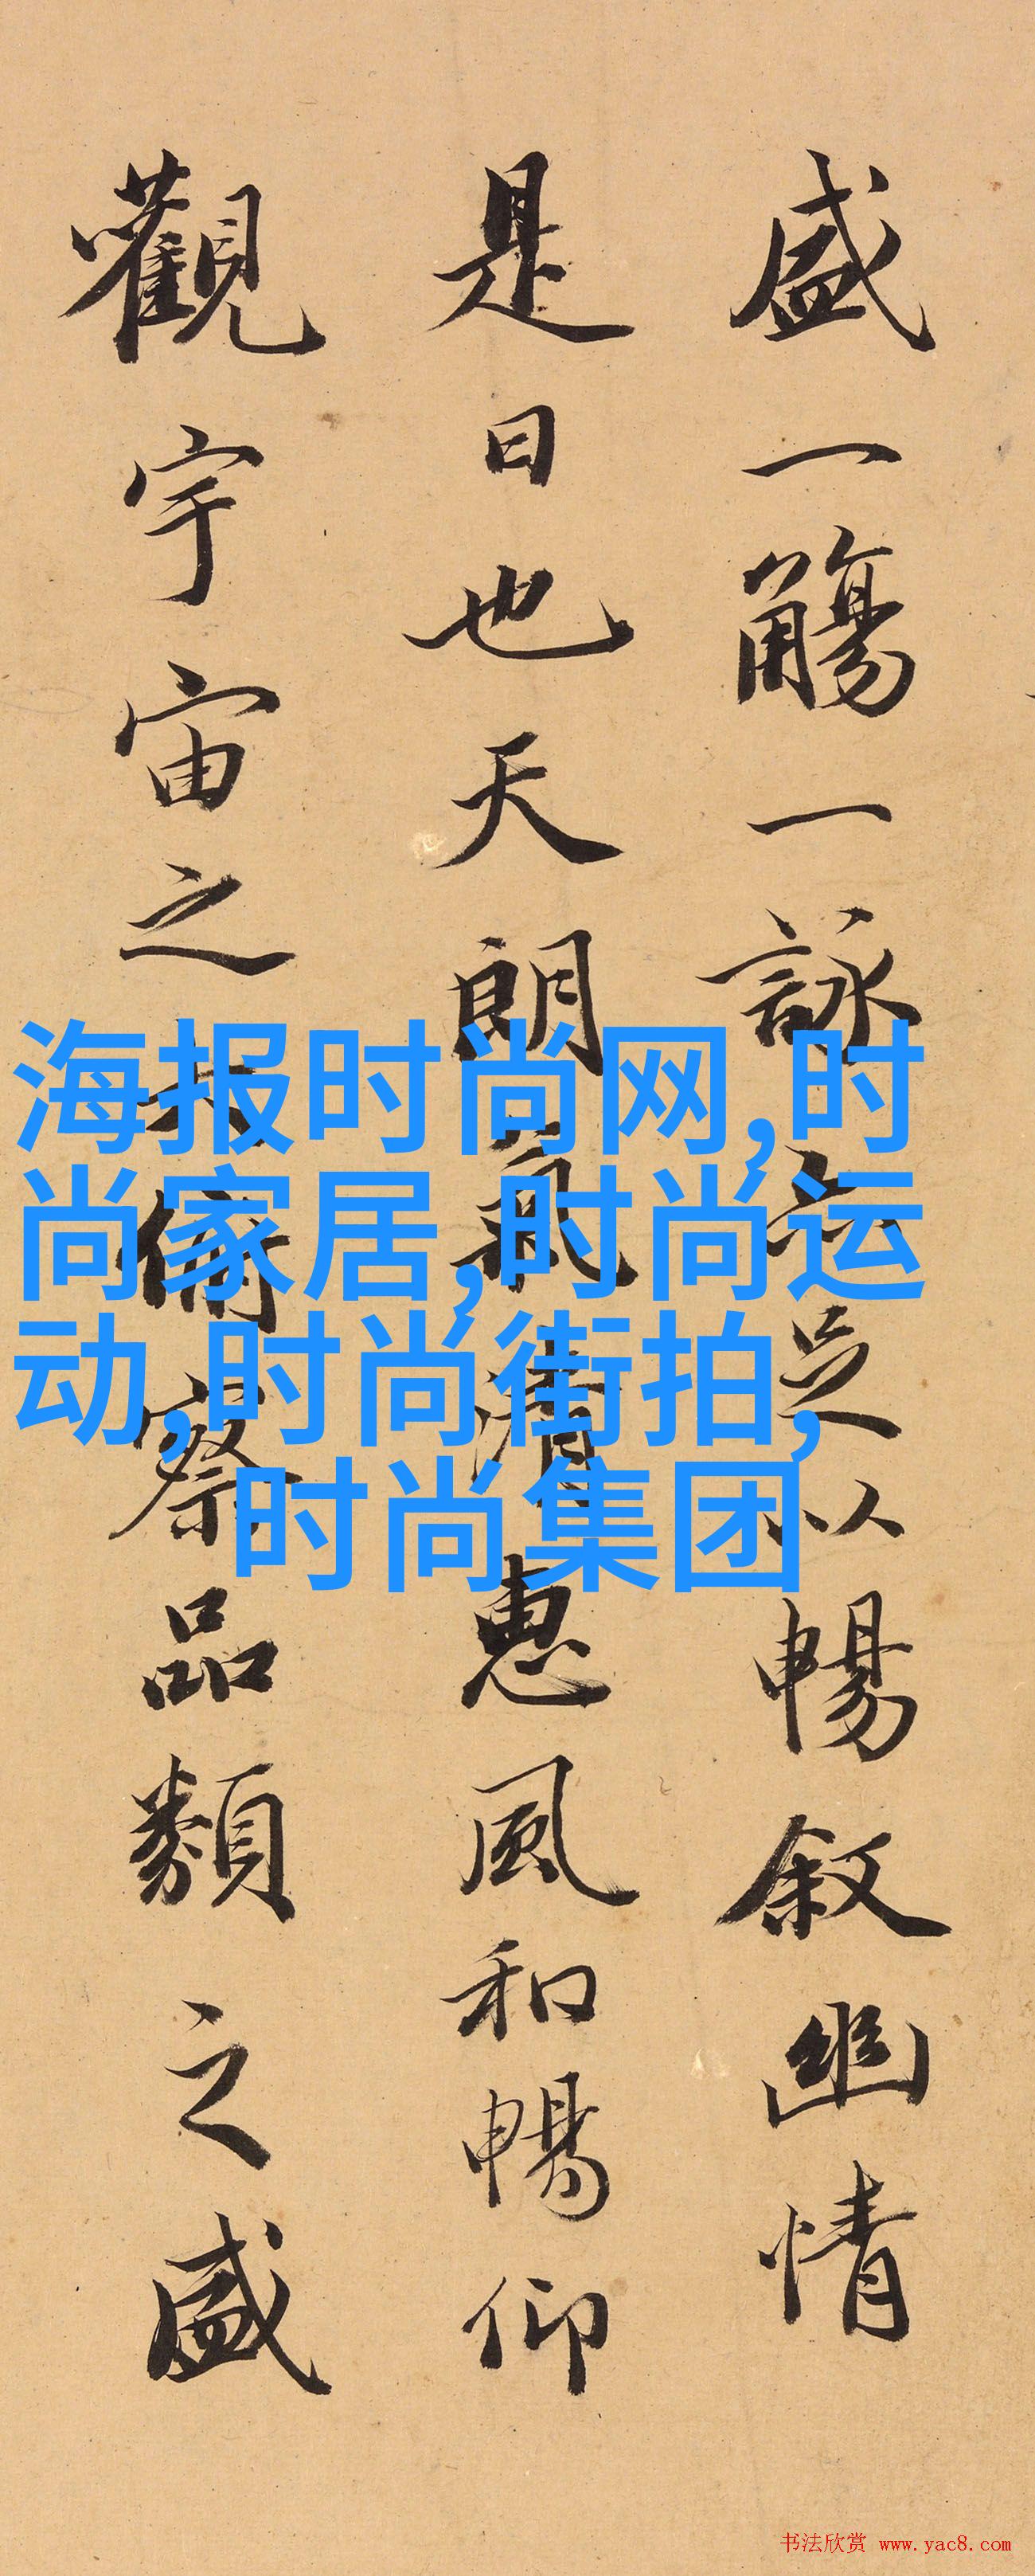 盛一觴一詠亦足以暢叙幽情
是日也天朗氣清惠風和暢仰
觀宇宙之大俯察品類之盛
海报时尚网,时
尚家居,时尚运
动,时尚街拍,
时尚集团
书法欣赏 www.yac8.com